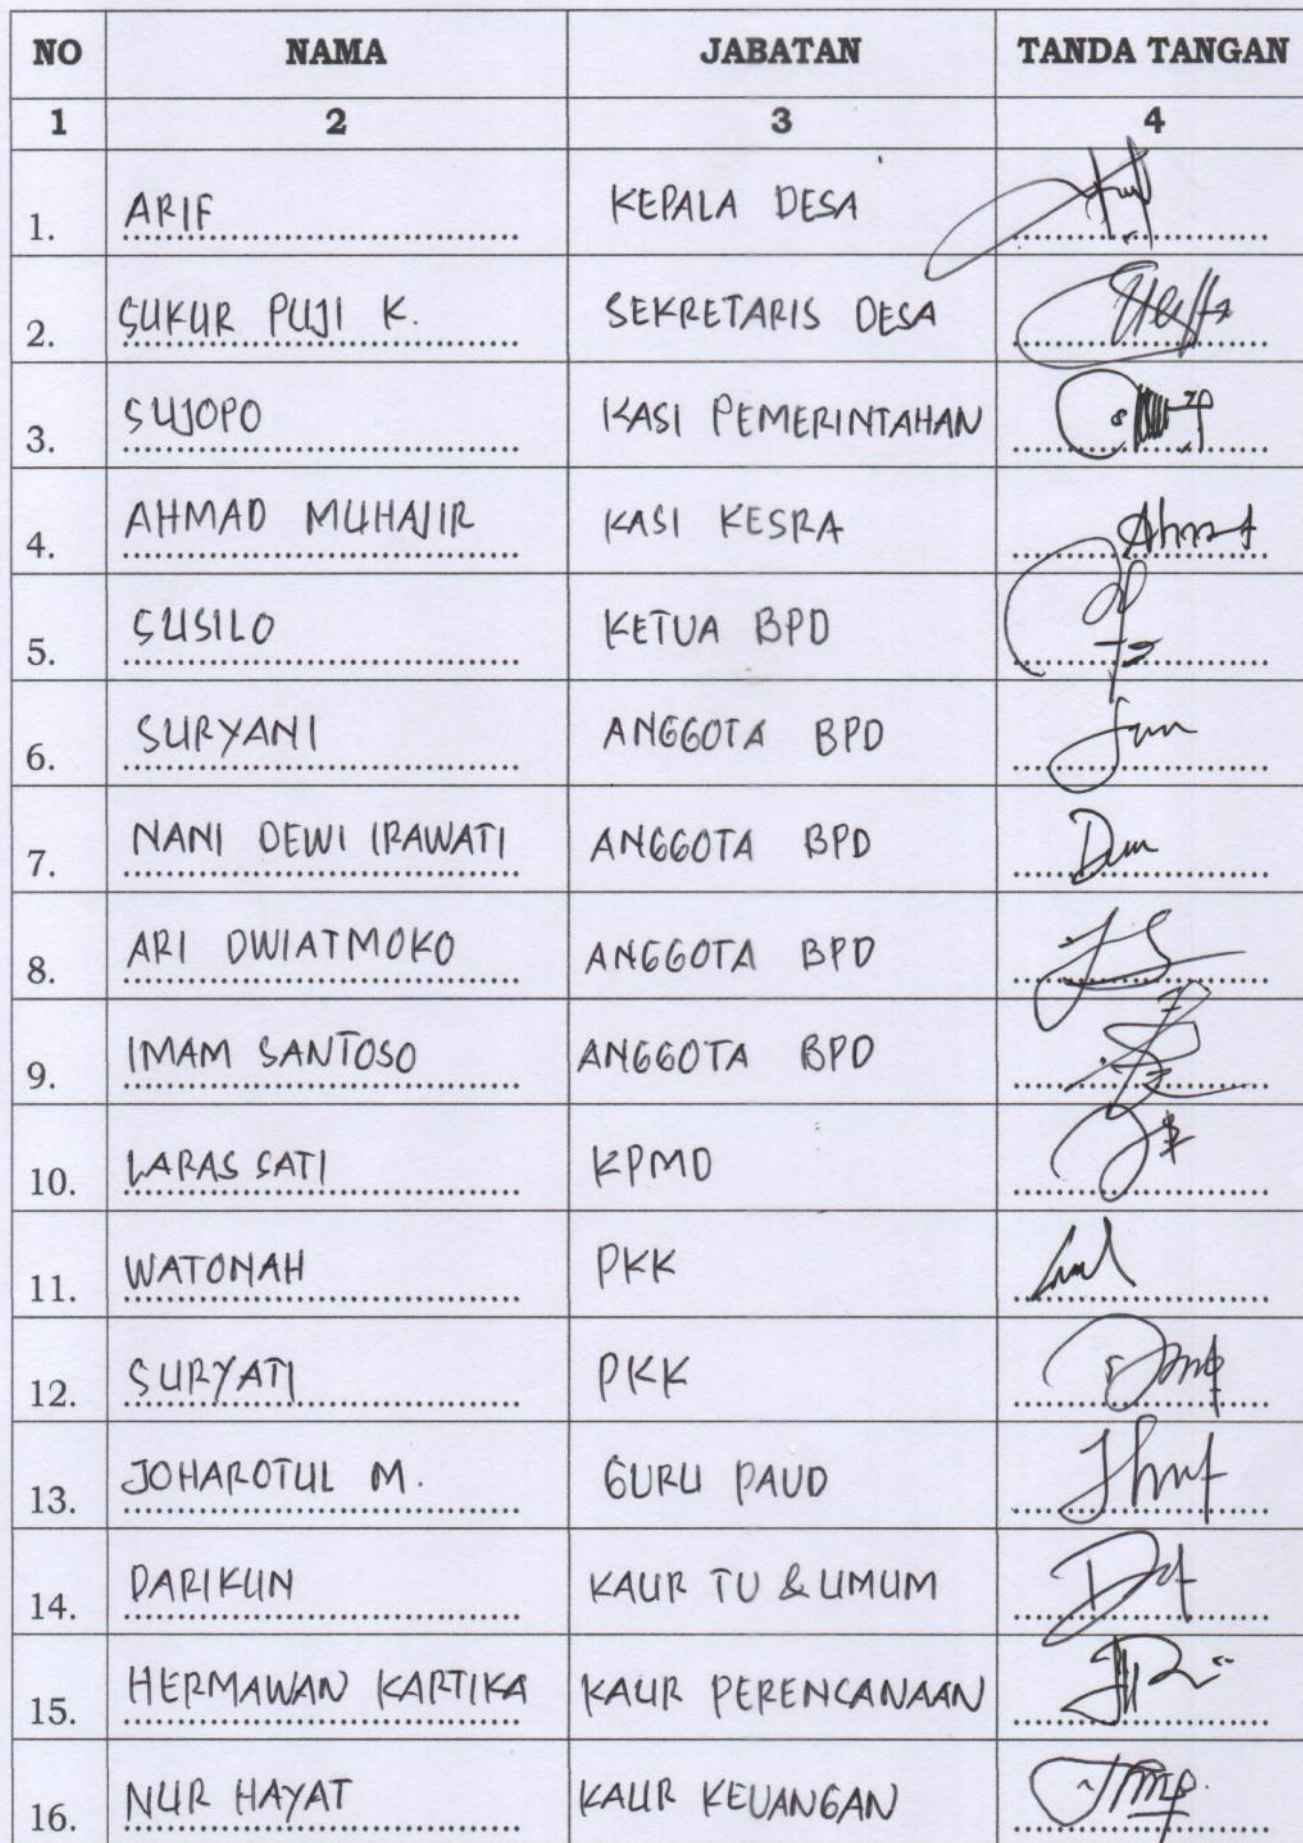 NO NAMA JABATAN TANDA TANGAN
1 2 3 4
1. ARIF KEPALA DESA
2. SUKUR PUJI K. SEKRETARIS DESA
3. SUJOPO KASI PEMERINTAHAN
4. AHMAD MUHAJIR KASI KESRA
5. SUSILO KETUA BPD
6. SURYANI ANGGOTA BPD
7. NANI DEWI IRAWATI ANGGOTA BPD
8. ARI DWIATMOKO ANGGOTA BPD
9. IMAM SANTOSO ANGGOTA BPD
10. LARAS SATI KPMD
11. WATONAH PKK
12. SURYATI PKK
13. JOHAROTUL M. GURU PAUD
14. DARIKUN KAUR TU & UMUM
15. HERMAWAN KARTIKA KAUR PERENCANAAN
16. NUR HAYAT KAUR KEUANGAN